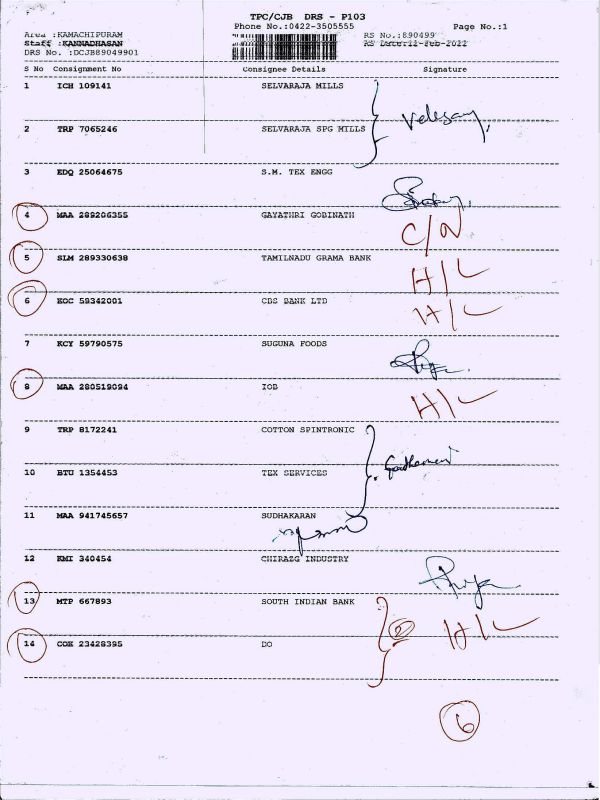 TPC/CJB DRS - P103
Phone No.:0422-3505555 Page No.:1
Area :KAMACHIPURAM RS No.:890499
Staff :KANNADHASAN RS Date:12-Feb-2022
DRS No. :DCJB89049901
S No Consignment No Consignee Details Signature
1 ICH 109141 SELVARAJA MILLS
2 TRP 7065246 SELVARAJA SPG MILLS
3 EDQ 25064675 S.M. TEX ENGG
4 MAA 289206355 GAYATHRI GOBINATH
C/N
5 SLM 289330638 TAMILNADU GRAMA BANK
H/L
6 KOC 59342001 CBS BANK LTD
H/L
7 KCY 59790575 SUGUNA FOODS
8 MAA 280519094 IOB
H/L
9 TRP 8172241 COTTON SPINTRONIC
10 BTU 1354453 TEX SERVICES
11 MAA 941745657 SUDHAKARAN
12 KMI 340454 CHIRAZG INDUSTRY
13 MTP 667893 SOUTH INDIAN BANK
2 H/L
14 COK 23428395 DO
6